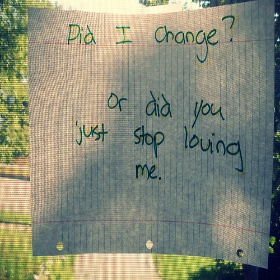 Did I change?
Or did you
just stop loving
me.